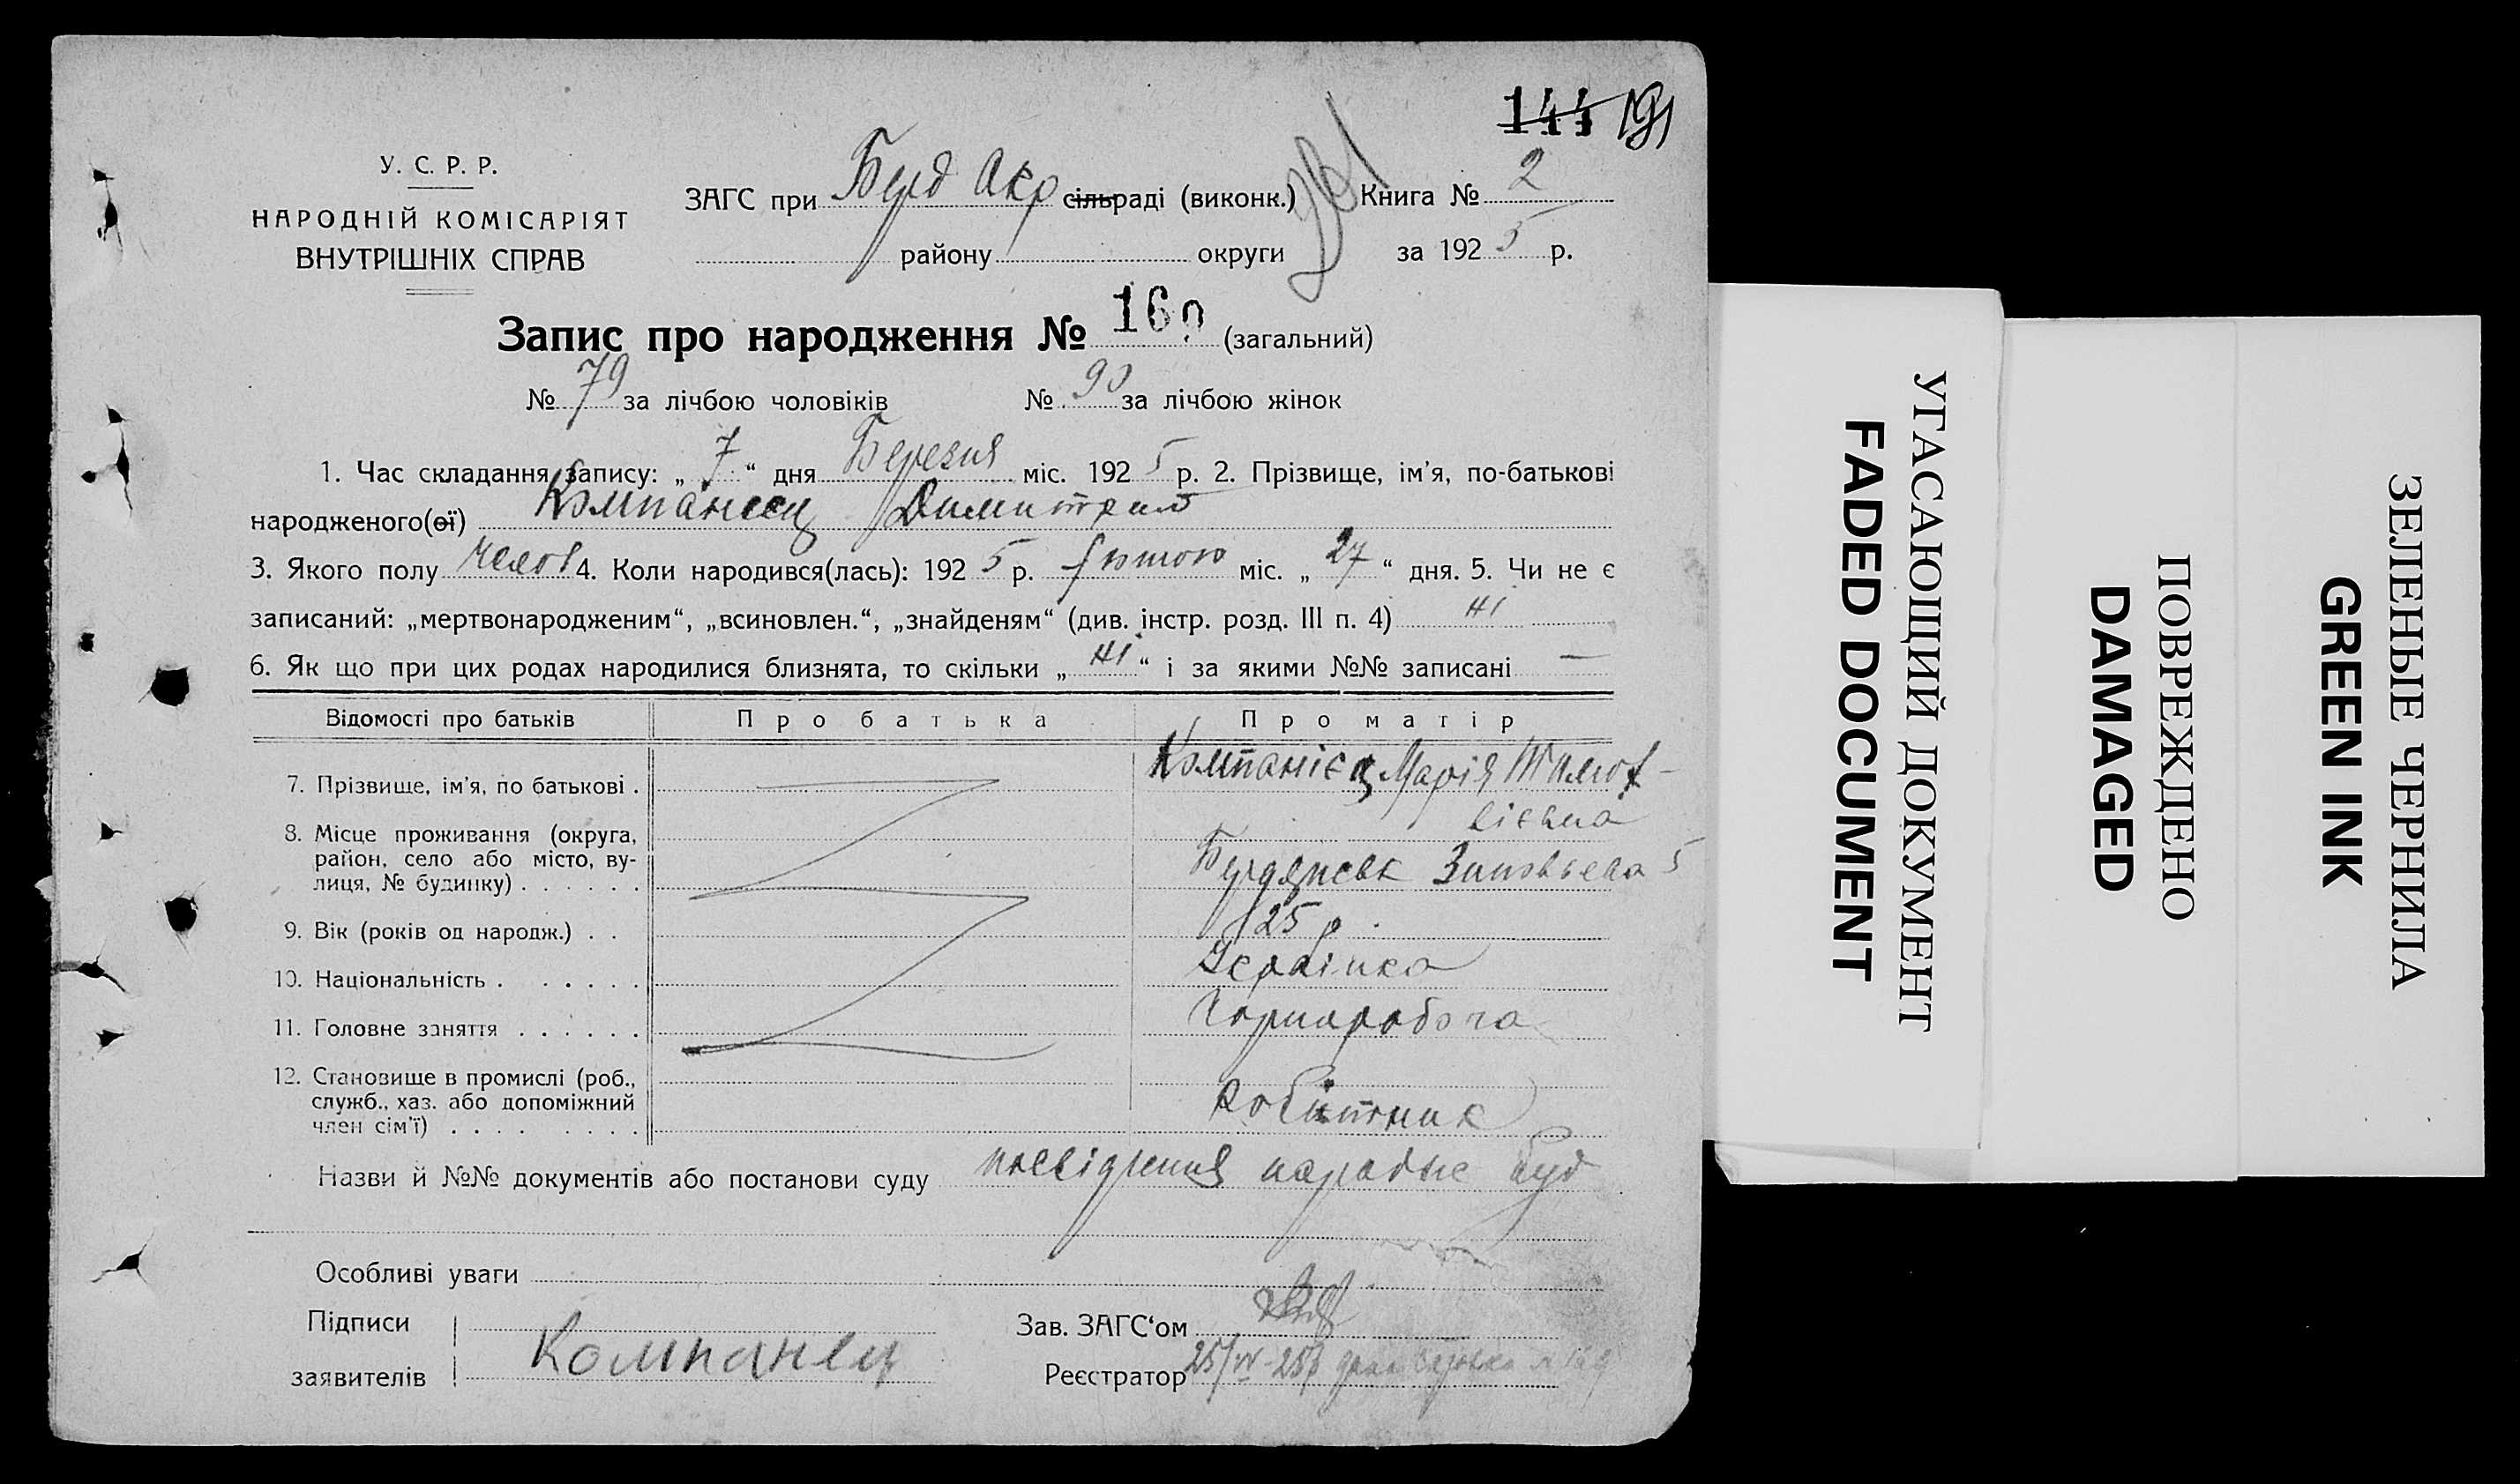 144 191
У. С. Р. Р.
НАРОДНІЙ КОМІСАРІЯТ
ВНУТРІШНІХ СПРАВ
ЗАГС при Берд Окр сільраді (виконк.) Книга № 2
району округи за 1925 р.
Запис про народження № 169 (загальний)
№ 79 за лічбою чоловіків № 90 за лічбою жінок
1. Час складання запису: „ 7 “ дня Березня міс. 1925 р. 2. Прізвище, ім'я, по-батькові
народженого(ої) Компанеец Димитрий
3. Якого полу челов 4. Коли народився(лась): 1925 р. Лютого міс. „ 27 “ дня. 5. Чи не є
записаний: „мертвонародженим“, „всиновлен.“, „знайденям“ (див. інстр. розд. III п. 4) ні
6. Як що при цих родах народилися близнята, то скільки „ ні “ і за якими №№ записані —
Відомості про батьків Про батька Про матір
7. Прізвище, ім'я, по батькові . Компанієц Марія Тимоф-
ієвна
8. Місце проживання (округа,
район, село або місто, ву-
лиця, № будинку) . . . . . . Бердянськ Зиновьева 5
9. Вік (років од народж.) . . 25 р.
10. Національність . . . . . . Українка
11. Головне заняття . . . . . . Чорноробоча
12. Становище в промислі (роб.,
служб., хаз. або допоміжний
член сім'ї) . . . . . . . . Робітник
Назви й №№ документів або постанови суду посвідчення буд
Особливі уваги
Підписи
заявителів Компанец
Зав. ЗАГС‘ом
Реєстратор 25/IV-25р
УГАСАЮЩИЙ ДОКУМЕНТ
FADED DOCUMENT
ПОВРЕЖДЕНО
DAMAGED
ЗЕЛЕНЫЕ ЧЕРНИЛА
GREEN INK